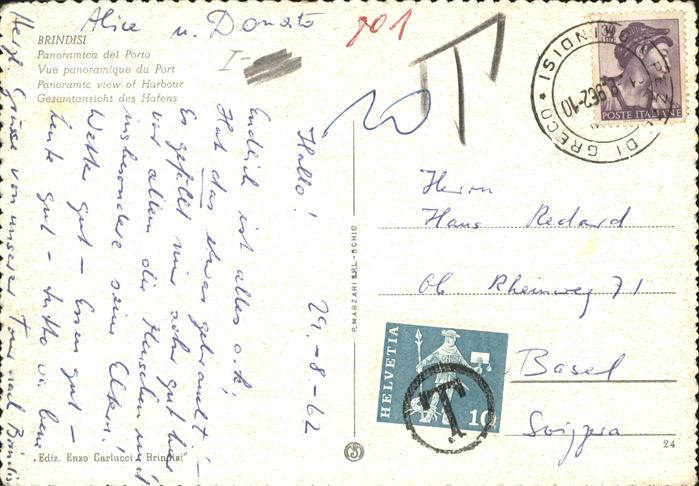 Alice u. Donato
BRINDISI
Panoramica del Porto
Vue panoramique du Port
Panoramic view of Harbour
Gesamtansicht des Hafens
I-
901
T
30
BRINDISI
DI GRECO
POSTE ITALIANE
29.-8-62
Hallo!
Endlich ist alles o.k.!
Hat das etwas gebraucht!
Es gefällt mir sehr gut hier
vor allem die Menschen und
insbesondere seine Eltern!
Wetter gut - Essen gut -
Leute gut - tutto va bene
Herzl. Grüsse von unserer Tour nach Brindisi
P. MARZARI S.R.L. - SCHIO
Herrn
Hans Redard
Ob. Rheinweg 71
Basel
Svizzera
HELVETIA
10
T
24
"Ediz. Enzo Carlucci, Brindisi"